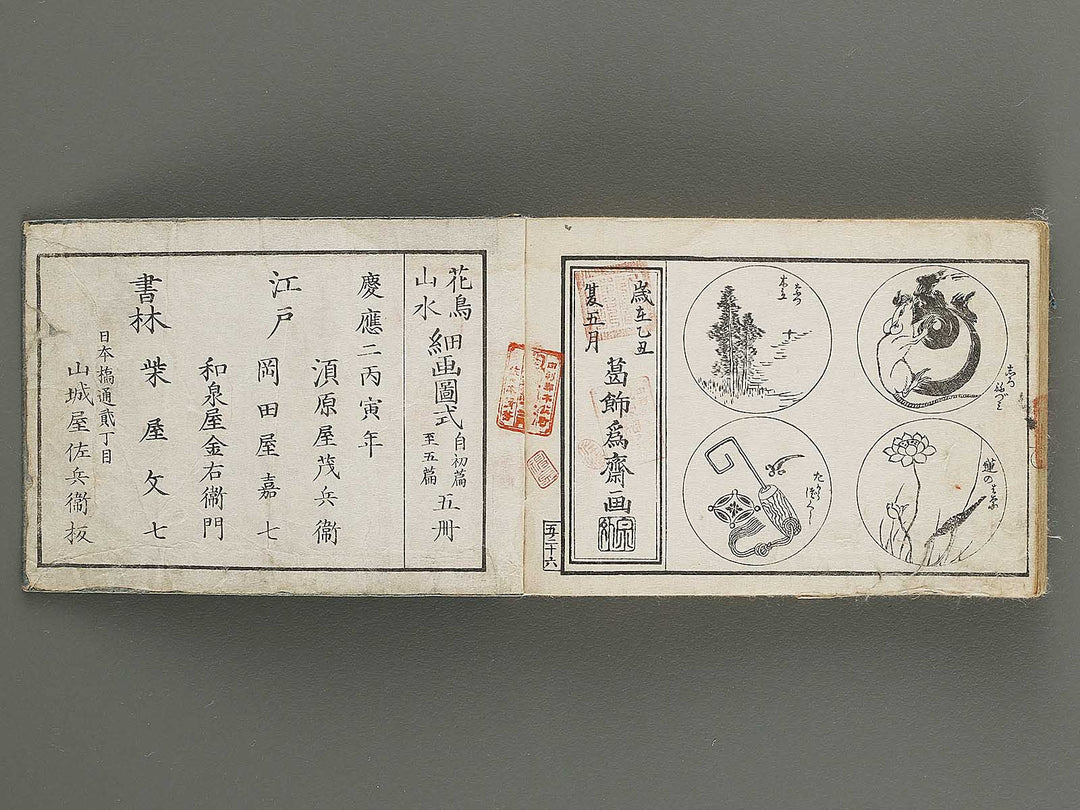 蓮の
木立
歳在乙丑
夏五月
葛飾為齋画
五ノ二十六
花鳥
山水
細画圖式
自初篇
至五篇
五冊
慶應二丙寅年
江戸
書林
須原屋茂兵衞
岡田屋嘉七
和泉屋金右衞門
柴屋文七
日本橋通貳丁目
山城屋佐兵衞板